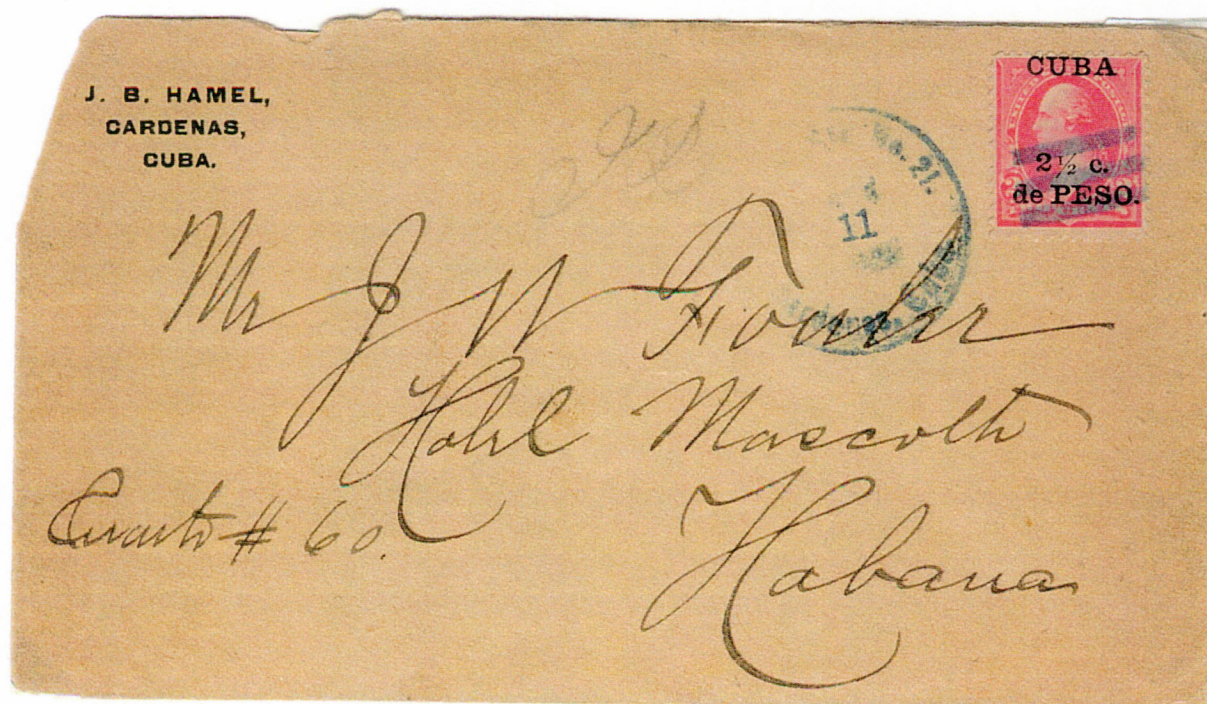 J. B. HAMEL,
CARDENAS,
CUBA.
CUBA
2½ c.
de PESO.
No. 21.
11
Cuba
Mr J W Fowler
Hotel Mascotte
Habana
Cuarto # 60.